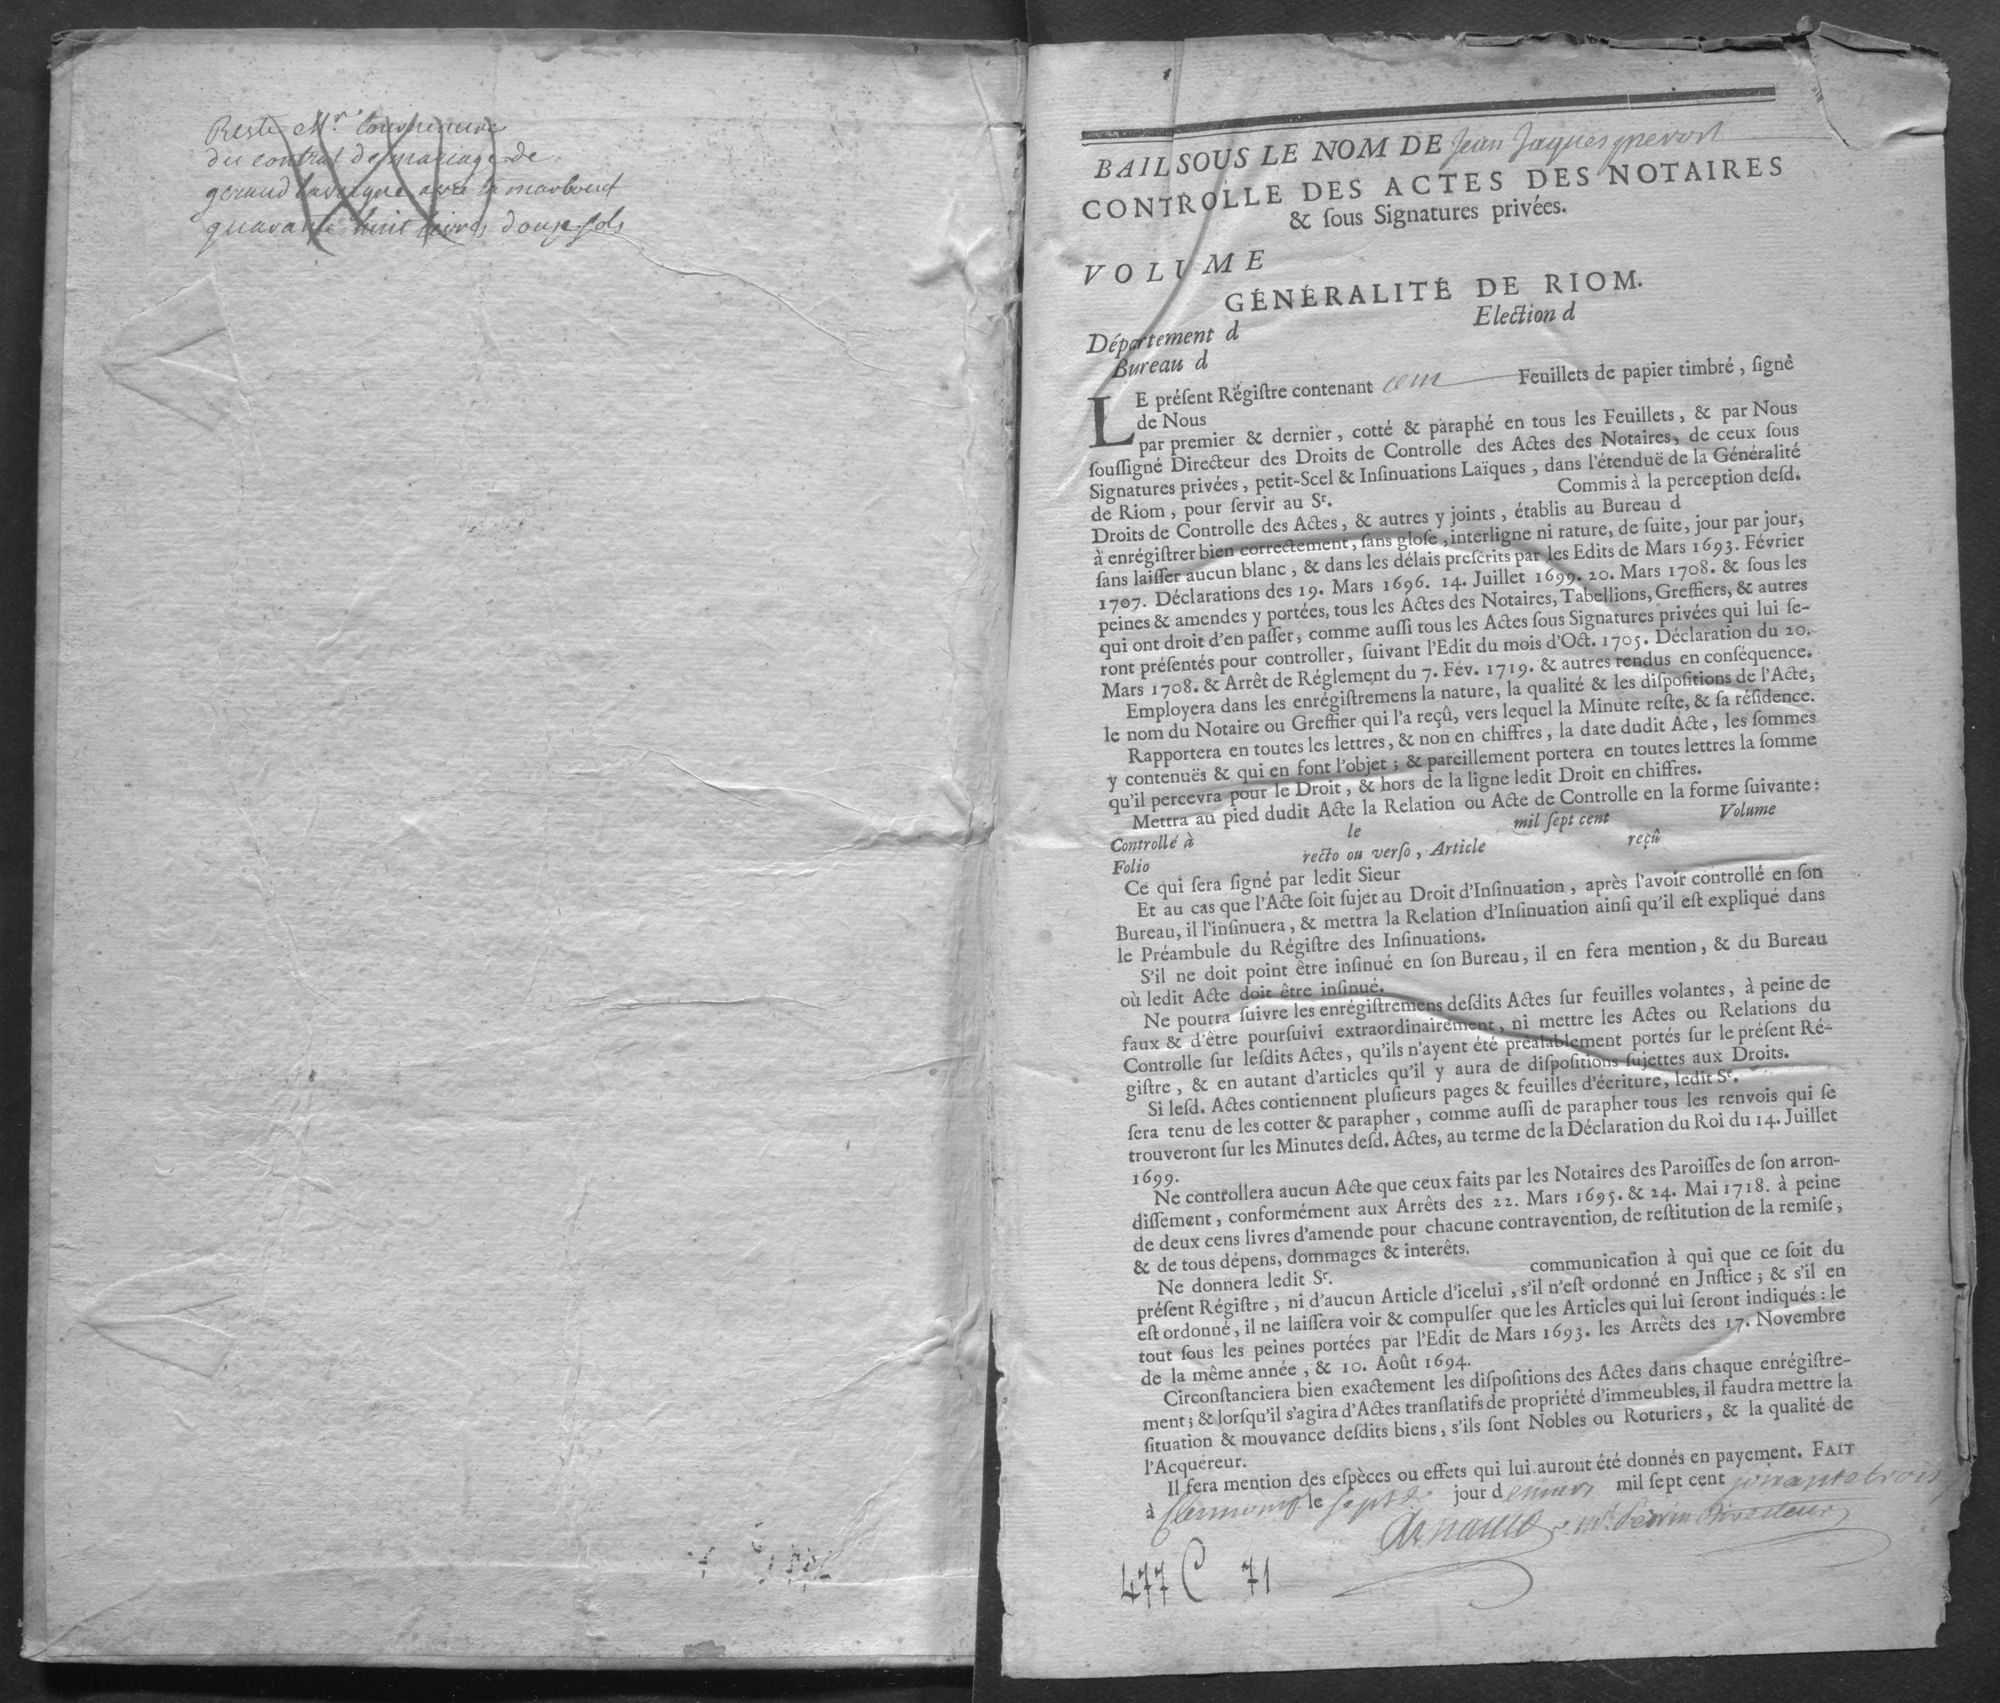 Reste Mr
du contrat de mariage de
geraud lavergne avec la marbout
quarante huit livres douze sols
BAIL SOUS LE NOM DE Jean Jaques prevost
CONTROLLE DES ACTES DES NOTAIRES
& ſous Signatures privées.
VOLUME
GÉNÉRALITÉ DE RIOM.
Département d Election d
Bureau d
LE préſent Régiſtre contenant cent Feuillets de papier timbré, ſigné
de Nous
par premier & dernier, cotté & paraphé en tous les Feuillets, & par Nous
ſouſſigné Directeur des Droits de Controlle des Actes des Notaires, de ceux ſous
Signatures privées, petit-Scel & Inſinuations Laïques, dans l'étenduë de la Généralité
de Riom, pour ſervir au Sr. Commis à la perception deſd.
Droits de Controlle des Actes, & autres y joints, établis au Bureau d
à enrégiſtrer bien correctement, ſans gloſe, interligne ni rature, de ſuite, jour par jour,
ſans laiſſer aucun blanc, & dans les délais preſcrits par les Edits de Mars 1693. Février
1707. Déclarations des 19. Mars 1696. 14. Juillet 1699. 20. Mars 1708. & ſous les
peines & amendes y portées, tous les Actes des Notaires, Tabellions, Greffiers, & autres
qui ont droit d'en paſſer, comme auſſi tous les Actes ſous Signatures privées qui lui ſe-
ront préſentés pour controller, ſuivant l'Edit du mois d'Oct. 1705. Déclaration du 20.
Mars 1708. & Arrêt de Réglement du 7. Fév. 1719. & autres rendus en conſéquence.
Employera dans les enrégiſtremens la nature, la qualité & les diſpoſitions de l'Acte,
le nom du Notaire ou Greffier qui l'a reçû, vers lequel la Minute reſte, & ſa réſidence.
Rapportera en toutes les lettres, & non en chiffres, la date dudit Acte, les ſommes
y contenuës & qui en font l'objet; & pareillement portera en toutes lettres la ſomme
qu'il percevra pour le Droit, & hors de la ligne ledit Droit en chiffres.
Mettra au pied dudit Acte la Relation ou Acte de Controlle en la forme ſuivante:
Controllé à le mil ſept cent Volume
Folio recto ou verſo, Article reçû
Ce qui ſera ſigné par ledit Sieur
Et au cas que l'Acte ſoit ſujet au Droit d'Inſinuation, après l'avoir controllé en ſon
Bureau, il l'inſinuera, & mettra la Relation d'Inſinuation ainſi qu'il eſt expliqué dans
le Préambule du Régiſtre des Inſinuations.
S'il ne doit point être inſinué en ſon Bureau, il en fera mention, & du Bureau
où ledit Acte doit être inſinué.
Ne pourra ſuivre les enrégiſtremens deſdits Actes ſur feuilles volantes, à peine de
faux & d'être pourſuivi extraordinairement, ni mettre les Actes ou Relations du
Controlle ſur leſdits Actes, qu'ils n'ayent été préalablement portés ſur le préſent Ré-
giſtre, & en autant d'articles qu'il y aura de diſpoſitions ſujettes aux Droits.
Si leſd. Actes contiennent pluſieurs pages & feuilles d'écriture, ledit Sr.
ſera tenu de les cotter & parapher, comme auſſi de parapher tous les renvois qui ſe
trouveront ſur les Minutes deſd. Actes, au terme de la Déclaration du Roi du 14. Juillet
1699.
Ne controllera aucun Acte que ceux faits par les Notaires des Paroiſſes de ſon arron-
diſſement, conformément aux Arrêts des 22. Mars 1695. & 24. Mai 1718. à peine
de deux cens livres d'amende pour chacune contravention, de reſtitution de la remiſe,
& de tous dépens, dommages & interêts.
Ne donnera ledit Sr. communication à qui que ce ſoit du
préſent Régiſtre, ni d'aucun Article d'icelui, s'il n'eſt ordonné en Juſtice; & s'il en
eſt ordonné, il ne laiſſera voir & compulſer que les Articles qui lui ſeront indiqués: le
tout ſous les peines portées par l'Edit de Mars 1693. les Arrêts des 17. Novembre
de la même année, & 10. Août 1694.
Circonſtanciera bien exactement les diſpoſitions des Actes dans chaque enrégiſtre-
ment; & lorſqu'il s'agira d'Actes tranſlatifs de propriété d'immeubles, il faudra mettre la
ſituation & mouvance deſdits biens, s'ils ſont Nobles ou Roturiers, & la qualité de
l'Acquéreur.
Il fera mention des eſpèces ou effets qui lui auront été donnés en payement. FAIT
à Clermont le sept jour d mil ſept cent soixante trois
Arnauld Directeur
477 C 71